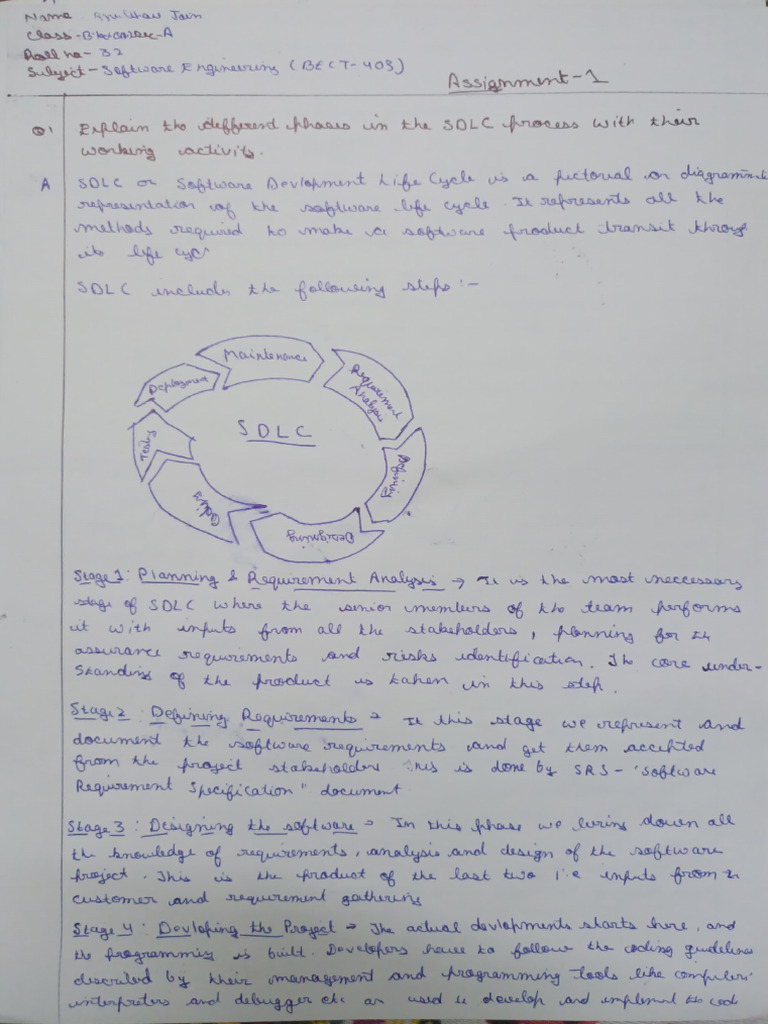 Name Jain
Class-
Roll no- 32
Subject- Software Engineering (BECT-403)
Assignment-1
Q1 Explain the defferend phases in the SDLC process with their
working activity.
A SDLC or Software Devlopment Life Cycle is a pictorial or diagrammatic
representation of the software life cycle. It represents all the
methods required to make a software product transit throug
its life cyc
SDLC includes the following steps :-
Maintenance
Requirement
Analysis
Defining
Designing
Coding
Testing
Deployment
SDLC
Stage 1: Planning & Requirement Analysis → It is the most neccessary
stage of SDLC where the senior members of the team performs
it with inputs from all the stakeholders, planning for
assurance requirements and risks identification. The core under-
standing of the product is taken in this step.
Stage 2 Defining Requirements → It this stage we represent and
document the software requirements and get them accepted
from the project stakeholders This is done by SRS - "Software
Requirement Specification" document
Stage 3 : Designing the software → In this phase we bring down all
the knowledge of requirements, analysis and design of the software
project. This is the product of the last two i.e inputs from
customer and requirement gathering
Stage 4 : Devloping the Project → The actual devlopments starts here, and
the programming is built. Developers have to follow the coding guidelines
described by their management and programming tools like compilers
interpreters and debugger etc are used to develop and implement the code